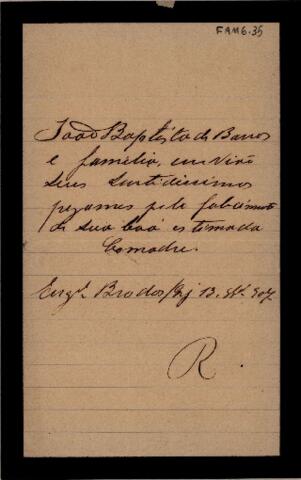 FAM6.35
João Baptista de Barros
e familia, envião
seus sentidissimos
pezames pelo falecimento
de sua boa estimada
Comadre.
13
R